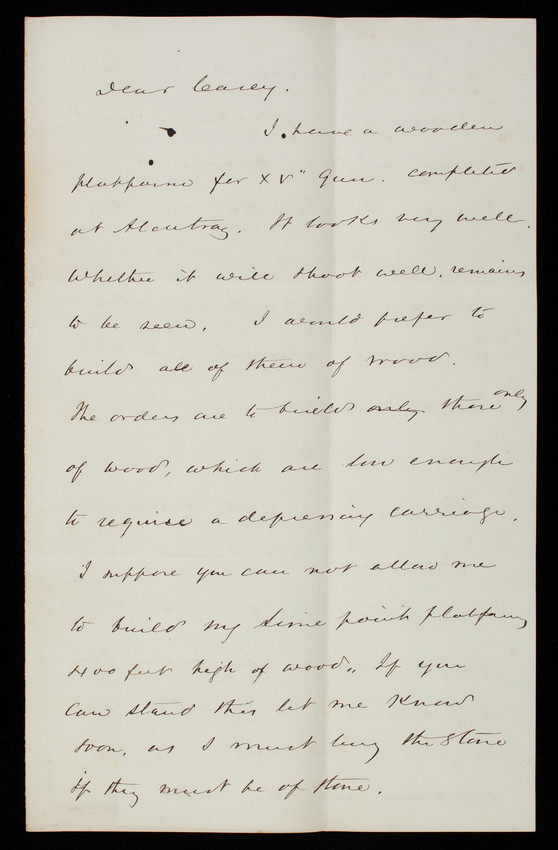 Dear Casey.
I have a wooden
platform for XV" Gun. completed
at Alcatraz. It looks very well.
Whether it will shoot well, remains
to be seen. I would prefer to
build all of them of wood.
The orders are to build only those only
of wood, which are low enough
to require a depressing carriage.
I suppose you can not allow me
to build my Lime point platforms
400 feet high of wood. If you
can stand this let me know
soon, as I must buy the stone
if they must be of stone.